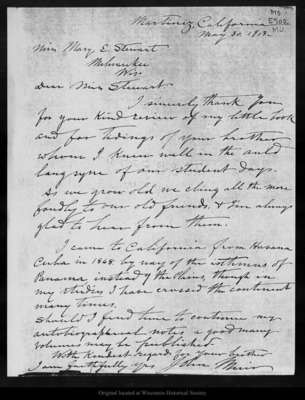 Martinez, California
May 30, 1913.
Ms
E902
MU
Miss Mary E. Stewart
Milwaukee
Wis.
Dear Miss Stewart.
I sincerely thank you
for your kind review of my little book
and for tidings of your brother
whom I knew well in the auld
lang syne of our student days.
As we grow old we cling all the more
fondly to our old friends, & I'm always
glad to hear from them.
I came to California from Havana
Cuba in 1868 by way of the isthmus of
Panama instead of the Plains, though in
my studies I have crossed the continent
many times.
Should I find time to continue my
autobiographical notes a good many
volumes may be published.
With kindest regards for your brother
I am faithfully yrs John Muir
Original located at Wisconsin Historical Society